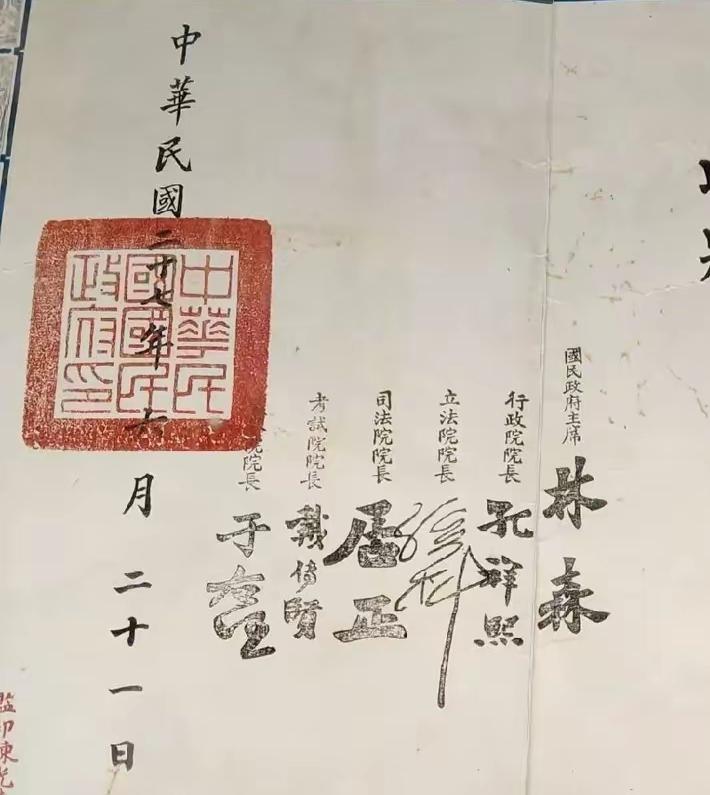 國民政府主席 林森
行政院院長 孔祥熙
立法院院長 孫科
司法院院長 居正
考試院院長 戴傳賢
院院長 于右任
中華民國二十七年 月二十一日
中華民
國國民
政府印
監印陳